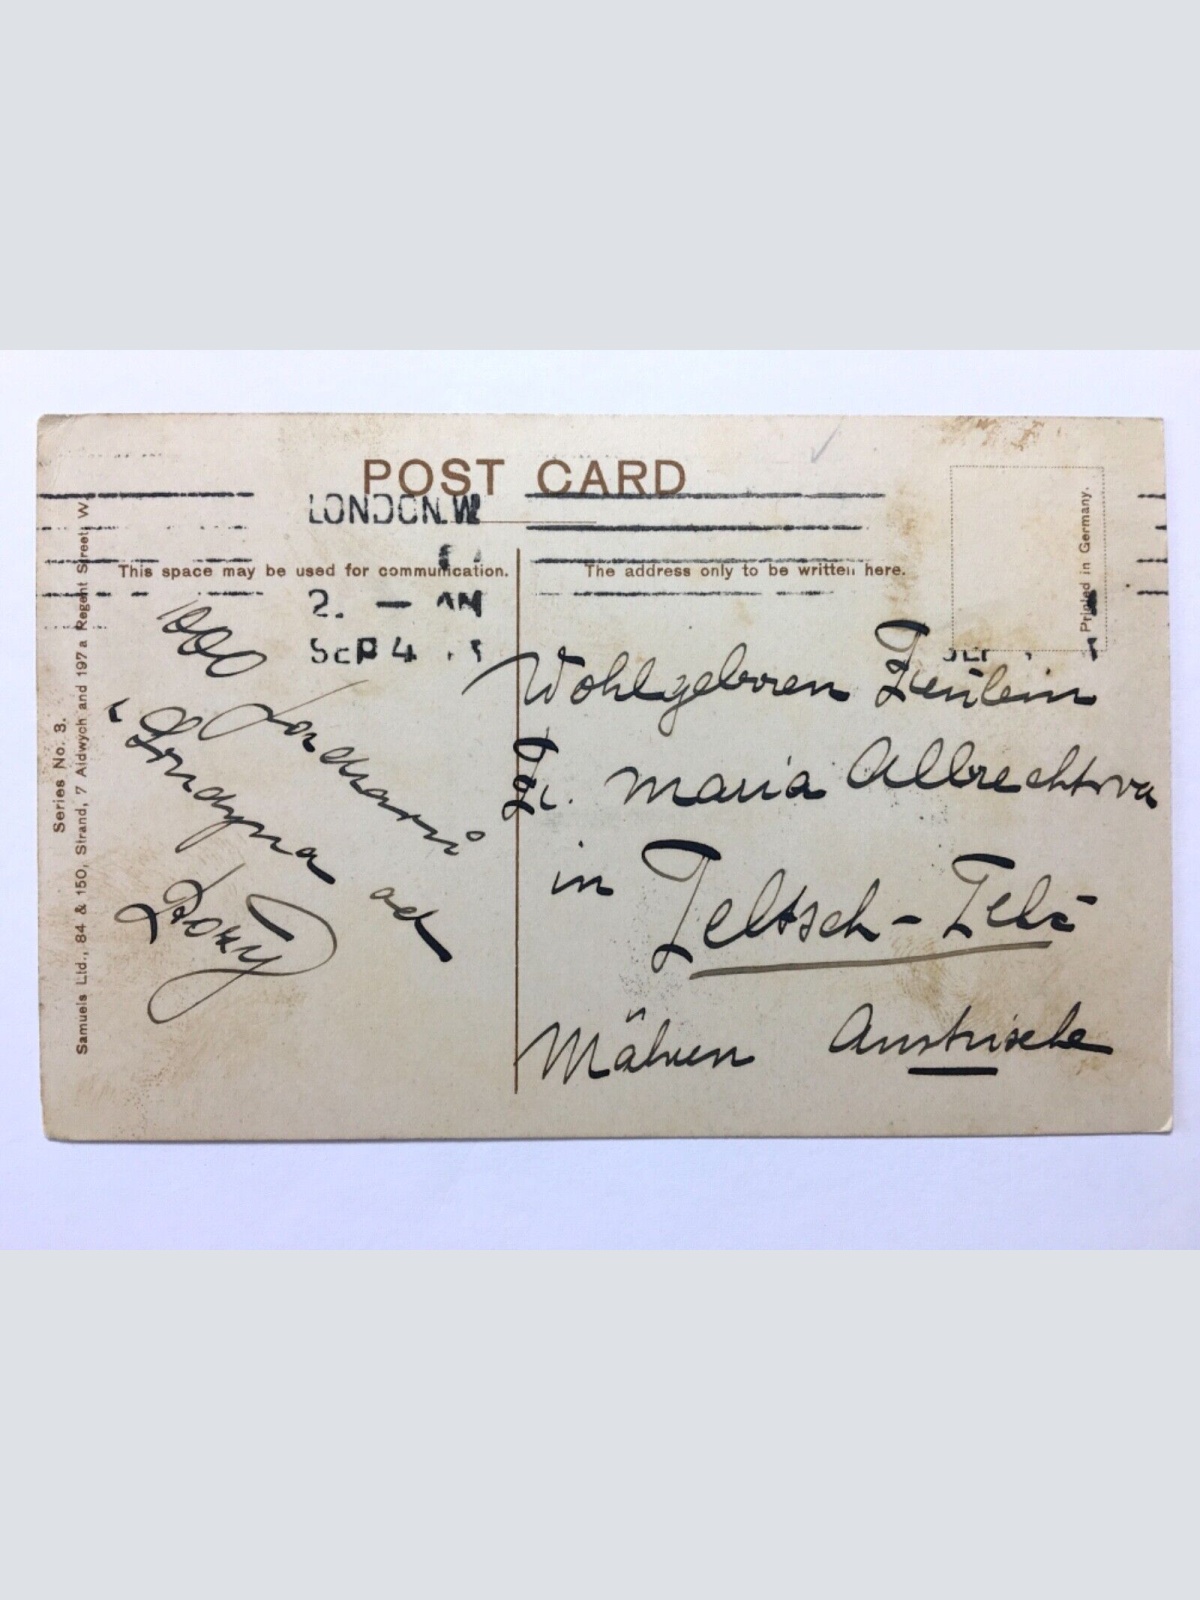 POST CARD
LONDON.W
2. — AM
SEP 4
This space may be used for communication.
The address only to be written here.
Printed in Germany.
Series No. 3.
Samuels Ltd., 84 & 150, Strand, 7 Aldwych and 197a Regent Street, W.
1000
z Londýna od
Wohlgeboren Freulein
Fr. Maria Albrechtova
in Teltsch - Telč
Mähren Austrische